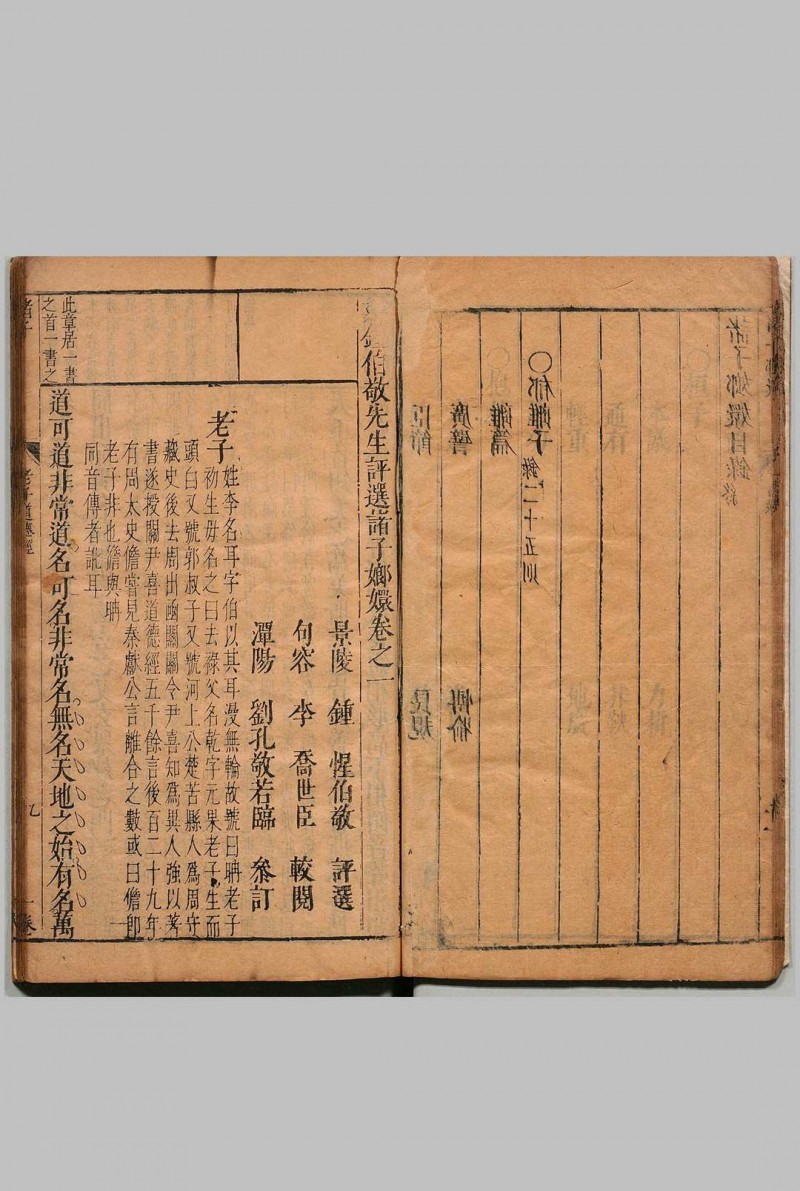 諸子嫏嬛目錄終
〇郁離子 錄二十五則
廣譬 博喻
臣節 良規
鍾伯敬先生評選諸子嫏嬛卷之一
景陵 鍾 惺伯敬 評選
句容 李 喬世臣 較閱
潭陽 劉孔敬若臨 叅訂
老子
姓李名耳字伯以其耳漫無輪故號曰聃老子
初生毋名之曰去祿父名乾字元果老子生而
頭白又號郭叔子又號河上公楚苦縣人爲周守
藏史後去周出函關關令尹喜知爲異人強以著
書遂授關尹喜道德經五千餘言後百二十九年
有周太史儋嘗見秦獻公言離合之數或曰儋卽
老子非也儋與聃
同音傳者訛耳
此章居一書
之首一書之
道可道非常道名可名非常名無名天地之始有名萬
諸子 老子道德經 一卷